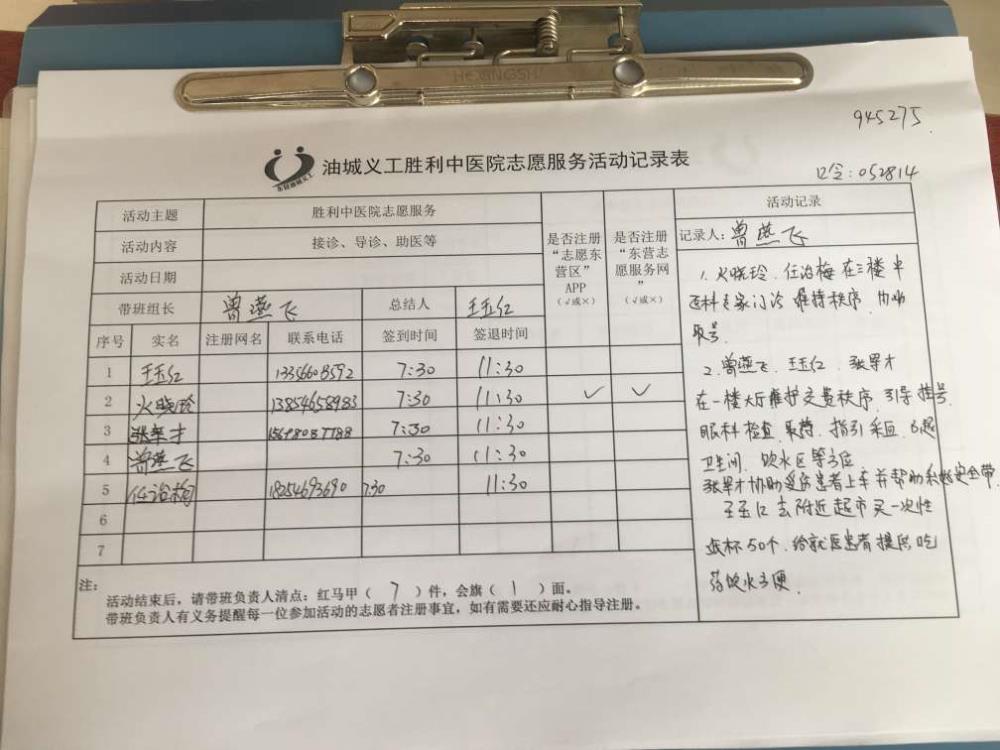 HEXINGSHI
945275
油城义工胜利中医院志愿服务活动记录表
口令:052814
活动主题 胜利中医院志愿服务
活动内容 接诊、导诊、助医等
活动日期
带班组长 曾燕飞 总结人 王玉红
是否注册“志愿东营区”APP(√或×)
是否注册“东营志愿服务网”(√或×)
序号 实名 注册网名 联系电话 签到时间 签退时间
1 王玉红 13356608592 7:30 11:30
2 火晓玲 13854658983 7:30 11:30 ✓ ✓
3 张军才 7:30 11:30
4 曾燕飞 7:30 11:30
5 任治梅 18254693690 7:30 11:30
6
7
注:
活动结束后,请带班负责人清点:红马甲(7)件,会旗(1)面。
带班负责人有义务提醒每一位参加活动的志愿者注册事宜,如有需要还应耐心指导注册。
活动记录
记录人:曾燕飞
1、火晓玲、任治梅在三楼
专家门诊维持秩序,协助
取号.
2、曾燕飞、王玉红、张军才
在一楼大厅维护交费秩序,引导挂号、
眼科检查、取药、指引采血、
卫生间、饮水区等方位
张军才协助受伤患者上车并帮助系好安全带.
王玉红去附近超市买一次性
纸杯50个,给就医患者提供吃
药饮水方便.